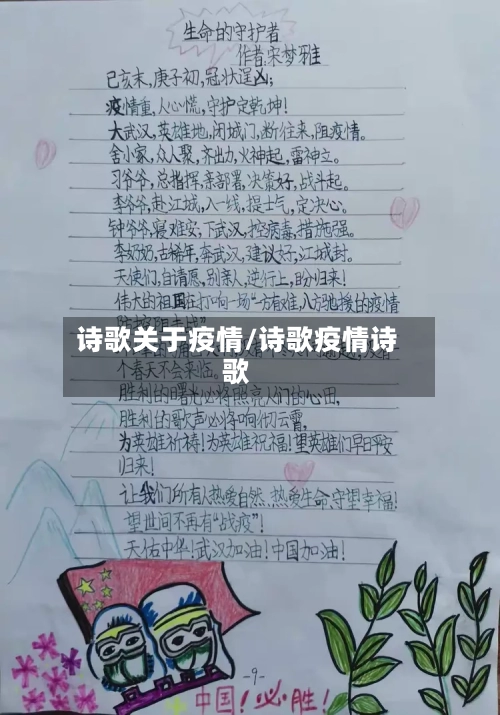 生命的守护者
作者:宋梦雅
己亥末,庚子初,冠状逞凶;
疫情重,人心慌,守护定乾坤!
大武汉,英雄地,闭城门,断往来,阻疫情。
舍小家,众人聚,齐出力,火神起,雷神立。
习爷爷,总指挥,亲部署,决策好,战斗起。
李爷爷,赴江城,入一线,提士气,定决心。
钟爷爷,寝难安,下武汉,控病毒,措施强。
李奶奶,古稀年,奔武汉,建议好,江城封。
天使们,自请愿,别亲人,逆行上,盼归来!
伟大的祖国在打响一场“一方有难,八方驰援的疫情
诗歌关于疫情/诗歌疫情诗
歌
个春天不会来临。
胜利的曙光必将照亮人们的心田,
胜利的歌声必将响彻云霄,
为英雄祈祷!为英雄祝福!望英雄们早日平安
归来!
让我们所有人热爱自然,热爱生命,守望幸福!
望世间不再有“战疫”!
天佑中华!武汉加油!中国加油!
-9-
中国!必胜!